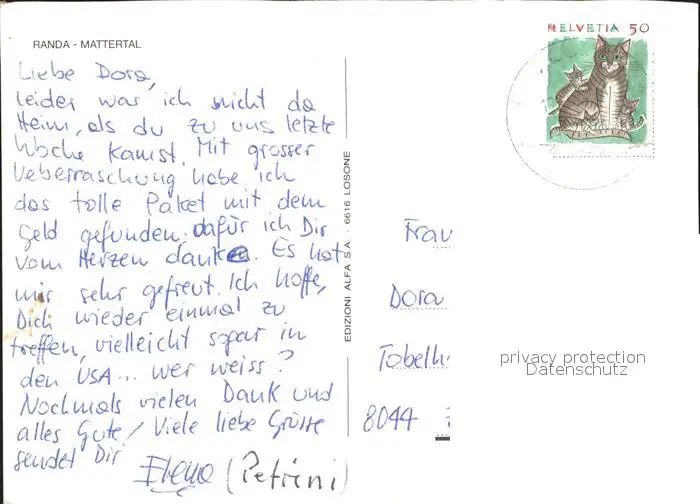 HELVETIA 50
RANDA - MATTERTAL
Liebe Dora,
leider war ich nicht da
Heim, als du zu uns letzte
Woche kamst. Mit grosser
Ueberraschung habe ich
das tolle Paket mit dem
Geld gefunden, dafür ich Dir
vom Herzen danke. Es hat
mir sehr gefreut. Ich hoffe,
Dich wieder einmal zu
treffen, vielleicht sogar in
den USA... wer weiss?
Nochmals vielen Dank und
alles Gute! Viele liebe Grüsse
sendet Dir
(Petrini)
EDIZIONI ALFA S.A. - 6616 LOSONE
Frau
Dora
Tobelh
8044
privacy protection
Datenschutz